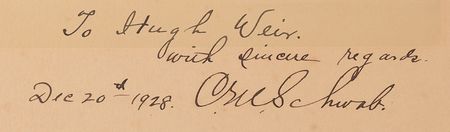 To Hugh Weir.
with sincere regards.
Dec 20th 1928. C.M. Schwab.